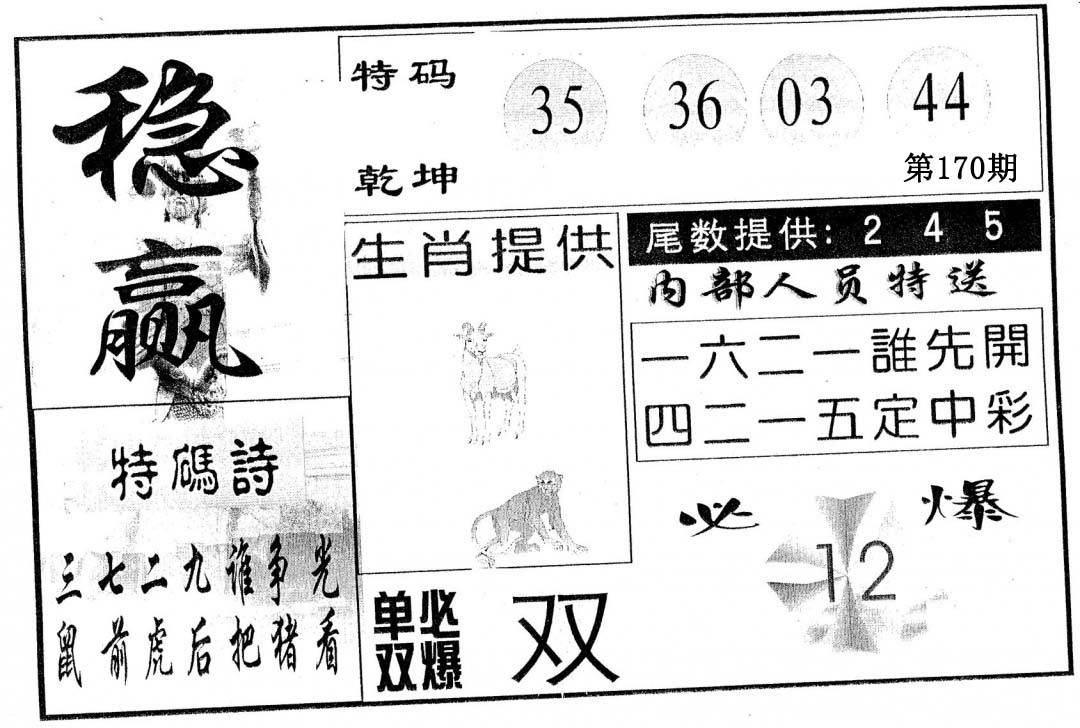 稳
赢
特码
35 36 03 44
乾坤
第170期
生肖提供
尾数提供: 2 4 5
内部人员特送
一六二一誰先開
四二一五定中彩
特碼詩
三七二九谁争光
鼠前虎后把猪看
必爆
12
单双必爆
双